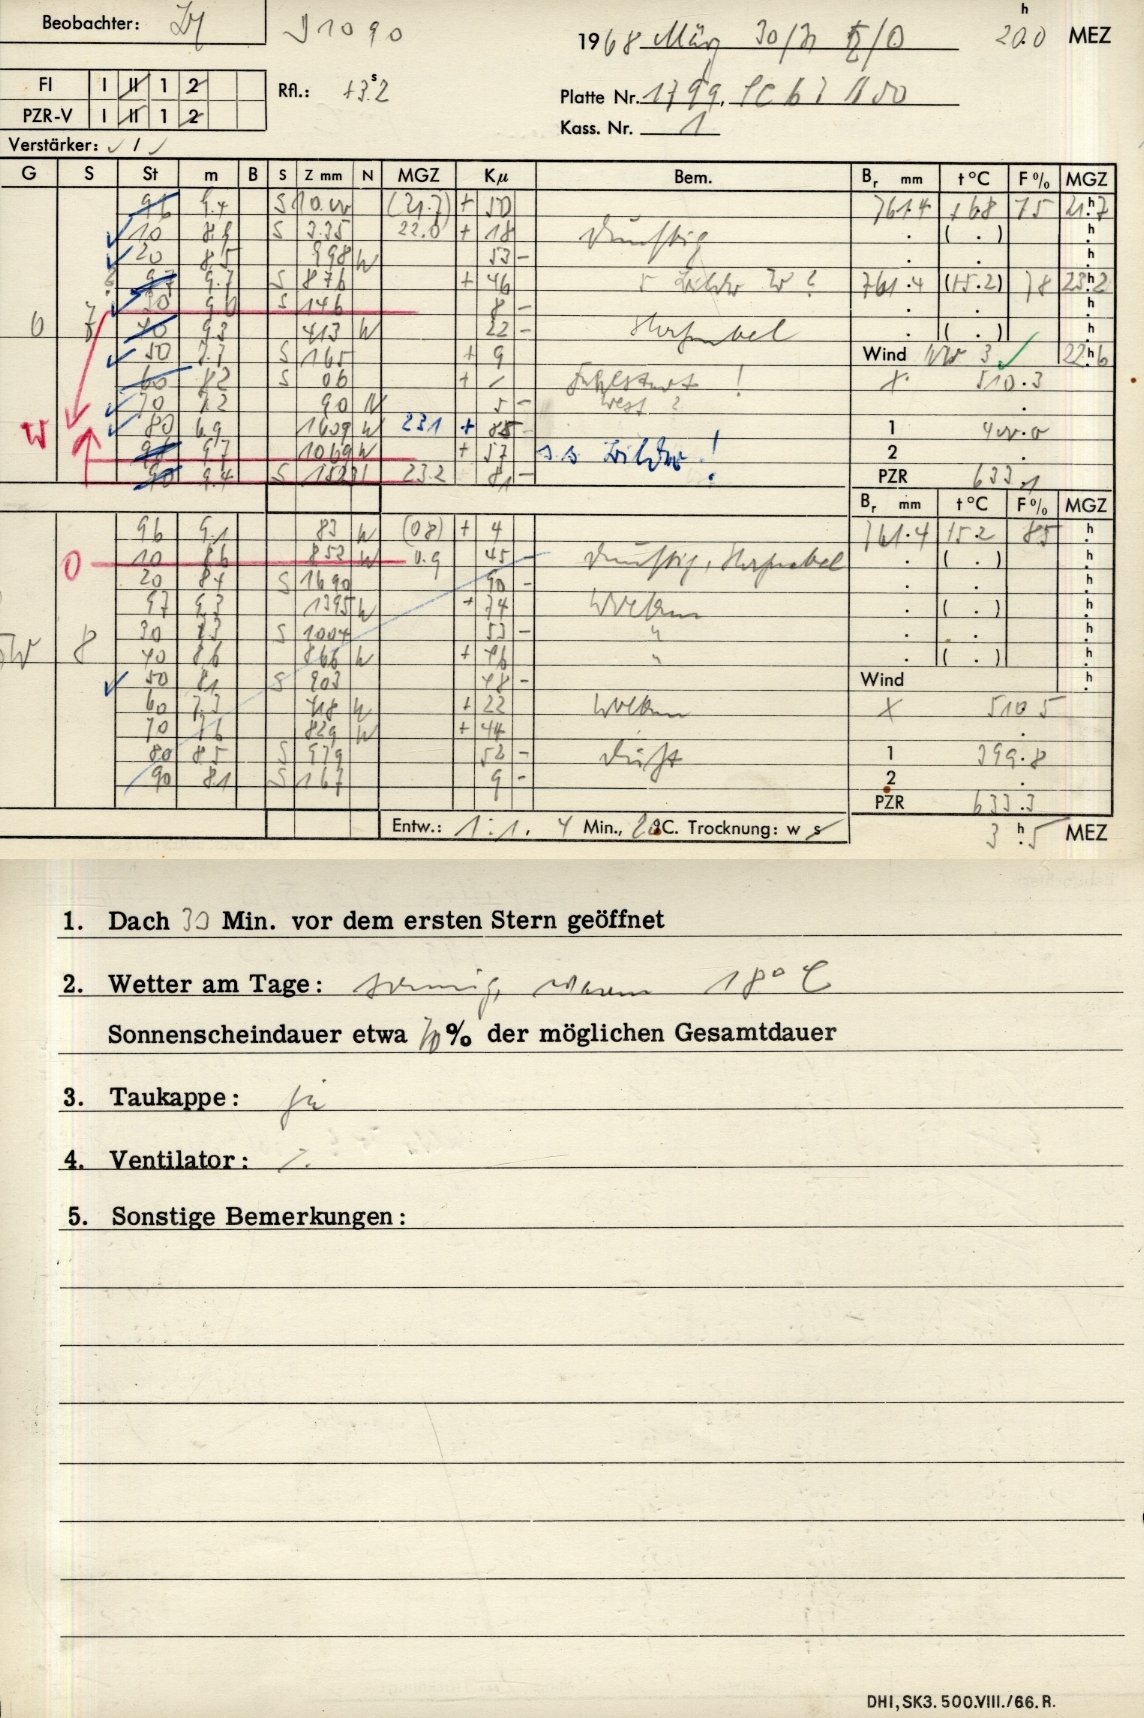 Beobachter:
1090
1968 März 30/31
20.0 h MEZ
FI I II 1 2
Rfl.: +3.2 s
Platte Nr. 1799,
PZR-V I II 1 2
Kass. Nr. 1
Verstärker:
G S St m B S Z mm N MGZ Kμ Bem. Br mm t°C F% MGZ
96 9.4 S (21.7) + 50 761.4 +6.8 75 21.7 h
10 8.9 S 3.35 22.0 + 18 dunstig . ( . ) h
20 8.5 998 W 53 -
97 9.7 S 876 + 46 5 Bilder W ? 761.4 (+5.2) 78 23.2 h
30 9.0 S 146 8 -
6 40 9.3 413 W 22 - Hochnebel
50 7.7 S 165 + 9 Wind NW 3 22.6 h
60 8.2 S 06 + 1 Fehlstart ! X 510.3
70 7.2 90 N 5 - West ?
W 80 6.9 1609 W 231 + 85 - 1 400.0
96 9.7 1069 W + 57 s.s Bilder ! 2
90 9.4 S 1523 23.2 81 - PZR 633.1
Br mm t°C F% MGZ
96 9.1 83 W (0.8) + 4 761.4 15.2 85 h
O 10 8.6 852 W 0.9 45 dunstig, Hochnebel . ( . ) h
20 8.4 S 1690 90 -
97 9.3 1395 W + 74 Wolken
30 8.3 S 1004 53 - "
W 8 40 8.6 866 W + 46 "
50 8.1 S 903 48 - Wind
60 7.3 418 W + 22 Wolken X 510.5
70 7.6 829 W + 44
80 8.5 S 979 52 - Dunst 1 399.8
90 8.1 S 167 9 - 2
PZR 633.3
Entw.: 1:1. 4 Min., 20°C. Trocknung: w s
3.5 h MEZ
1. Dach 30 Min. vor dem ersten Stern geöffnet
2. Wetter am Tage: sonnig, warm 18° C
Sonnenscheindauer etwa 70% der möglichen Gesamtdauer
3. Taukappe: ja
4. Ventilator: /.
5. Sonstige Bemerkungen:
DHI, SK3. 500.VIII./66. R.